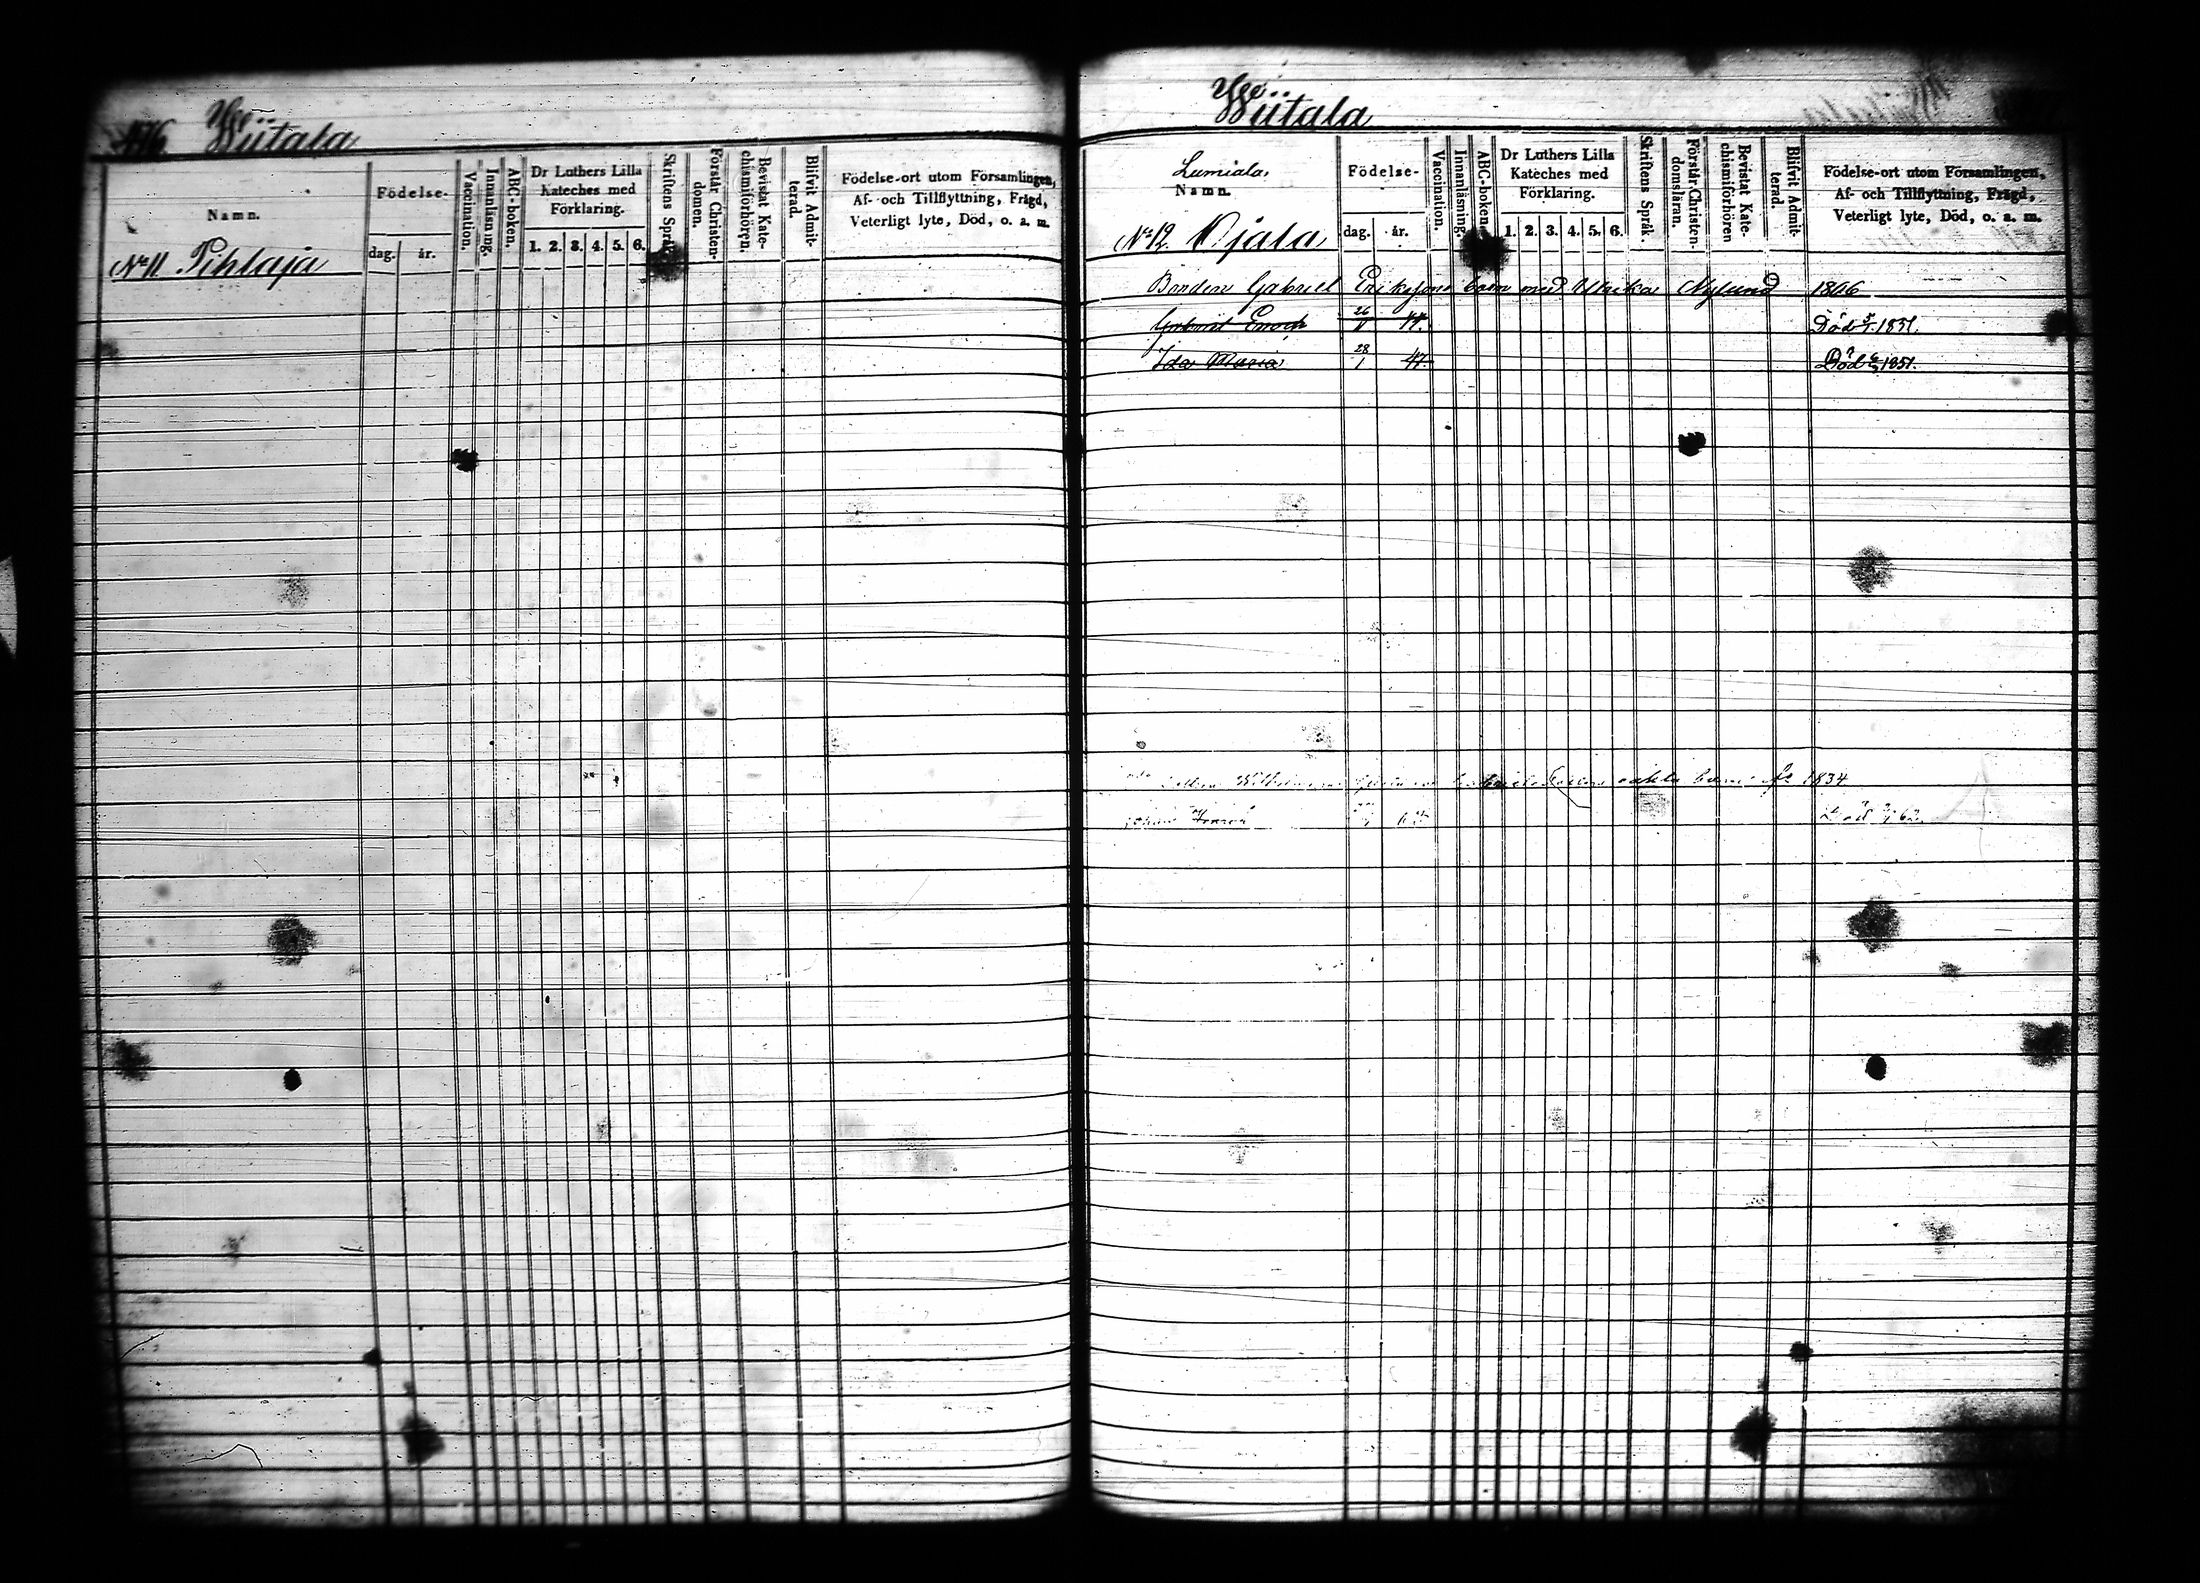 476 Wiitala
Namn.
Födelse-
dag.
år.
Vaccination.
Innanläsning.
ABC-boken.
Dr Luthers Lilla
Kateches med
Förklaring.
1. 2. 3. 4. 5. 6.
Skriftens Språk.
Förstår Christen-
domen.
Bevistat Kate-
chismiförhören.
Blifvit Admit-
terad.
Födelse-ort utom Församlingen,
Af- och Tillflyttning, Frägd,
Veterligt lyte, Död, o. a. m.
No 11 Pihlaja
Wiitala
Lumiala.
Namn.
No 12. Ojala
Födelse-
dag.
år.
Vaccination.
Innanläsning.
ABC-boken.
Dr Luthers Lilla
Kateches med
Förklaring.
1. 2. 3. 4. 5. 6.
Skriftens Språk.
Förstår Christen-
domsläran.
Bevistat Kate-
chismiförhören
Blifvit Admit-
terad.
Födelse-ort utom Församlingen,
Af- och Tillflyttning, Frägd,
Veterligt lyte, Död, o. a. m.
Bonden Gabriel Erikssons barn med Ulrika Nylund 1806
Gabriel Enoch 26 47. Död 1851.
Ida Maria 28/1 47. Död 1851.
oäkta barn 1834
Död 62.